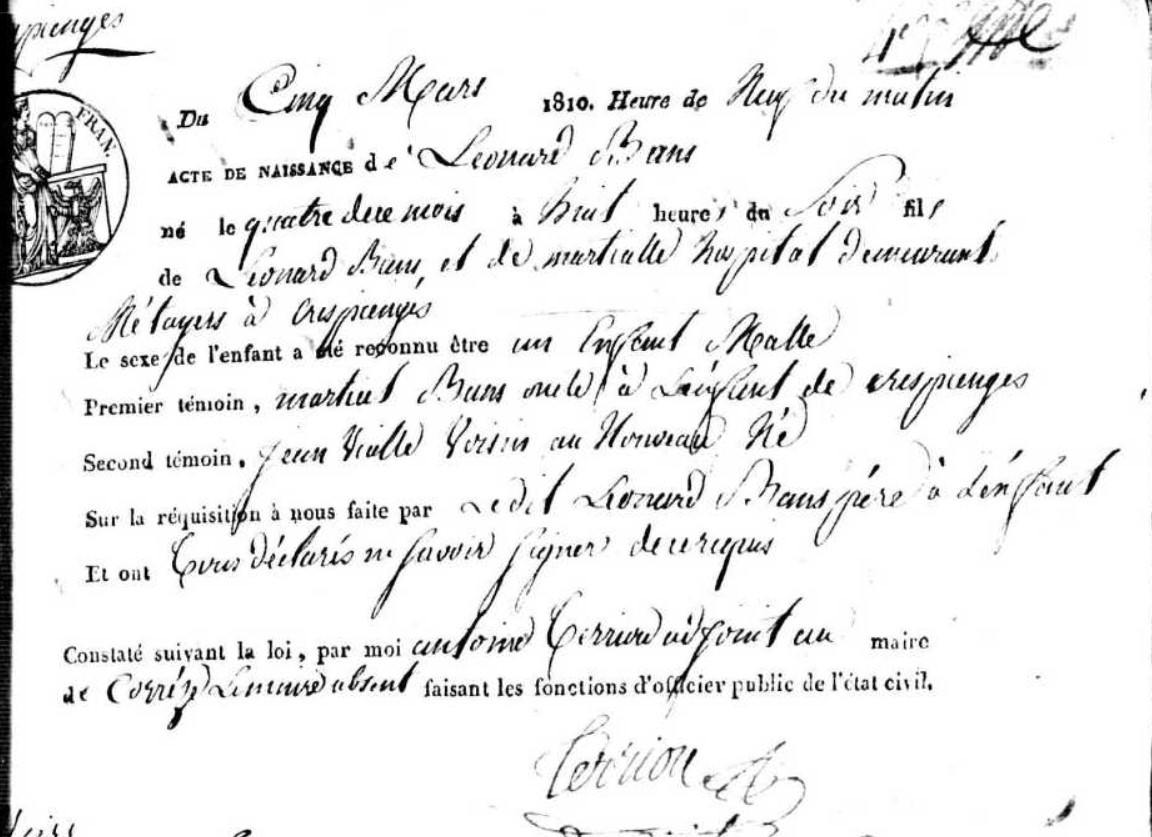 FRAN.
Du Cinq Mars 1810. Heure de Neuf du matin
ACTE DE NAISSANCE de Leonard Bans
né le quatre dece mois à huit heures du Soir fils
de Léonard Bans, et de martialle hospital demeurant
Métayers à crespienges
Le sexe de l'enfant a été reconnu être un Enfant Malle
Premier témoin, martial Bans oncle à L'enfant de crespienges
Second témoin, jean Vialle Voisin au Nouveau Né
Sur la réquisition à nous faite par Ledit Léonard Bans père à L'enfant
Et ont tous déclarés ne savoir signer de ce requis
Constaté suivant la loi, par moi antoine Terriou adjoint au maire
de Lemaire absent faisant les fonctions d'officier public de l'état civil.
Terriou